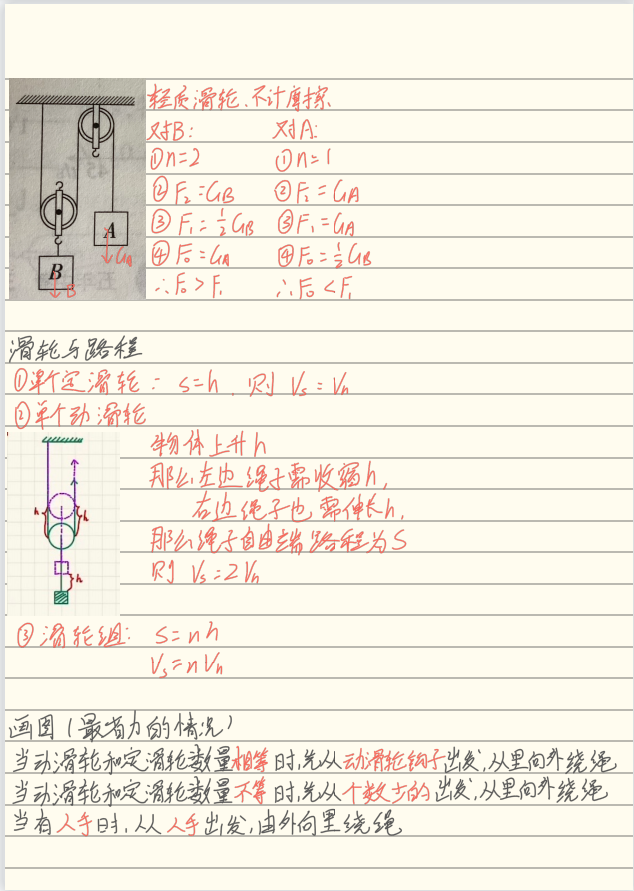 轻质滑轮、不计摩擦
对B: 对A:
①n=2 ①n=1
②F₂=GB ②F₂=GA
③F₁=½GB ③F₁=GA
④F₀=GA ④F₀=½GB
∴F₀>F₁ ∴F₀<F₁
A
GA
B
B
滑轮与路程
①单个定滑轮: s=h. 则 Vs=Vh
②单个动滑轮
物体上升h
那么左边绳子需收缩h,
右边绳子也需伸长h,
那么绳子自由端路程为S
则 Vs=2Vh
h h
h
③滑轮组: S=nh
Vs=nVh
画图(最省力的情况)
当动滑轮和定滑轮数量相等时,先从动滑轮钩子出发,从里向外绕绳
当动滑轮和定滑轮数量不等时,先从个数少的出发,从里向外绕绳
当有人手时,从人手出发,由外向里绕绳